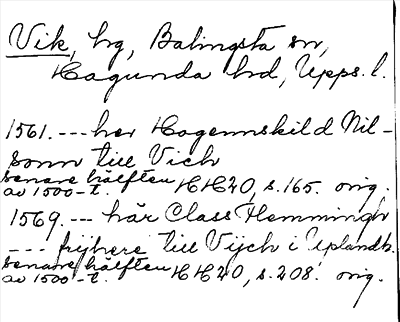 Vik, hg, Balingsta sn,
Hagunda hd, Upps. l.
1561. --- her Hogennskild Nil-
sonn till Vich
senare hälften
av 1500-t. HH20, s. 165. orig.
1569. --- här Class Flemmingh
--- frijhere till Vijch i Uplandh.
senare hälften
av 1500-t. HH20, s. 208. orig.